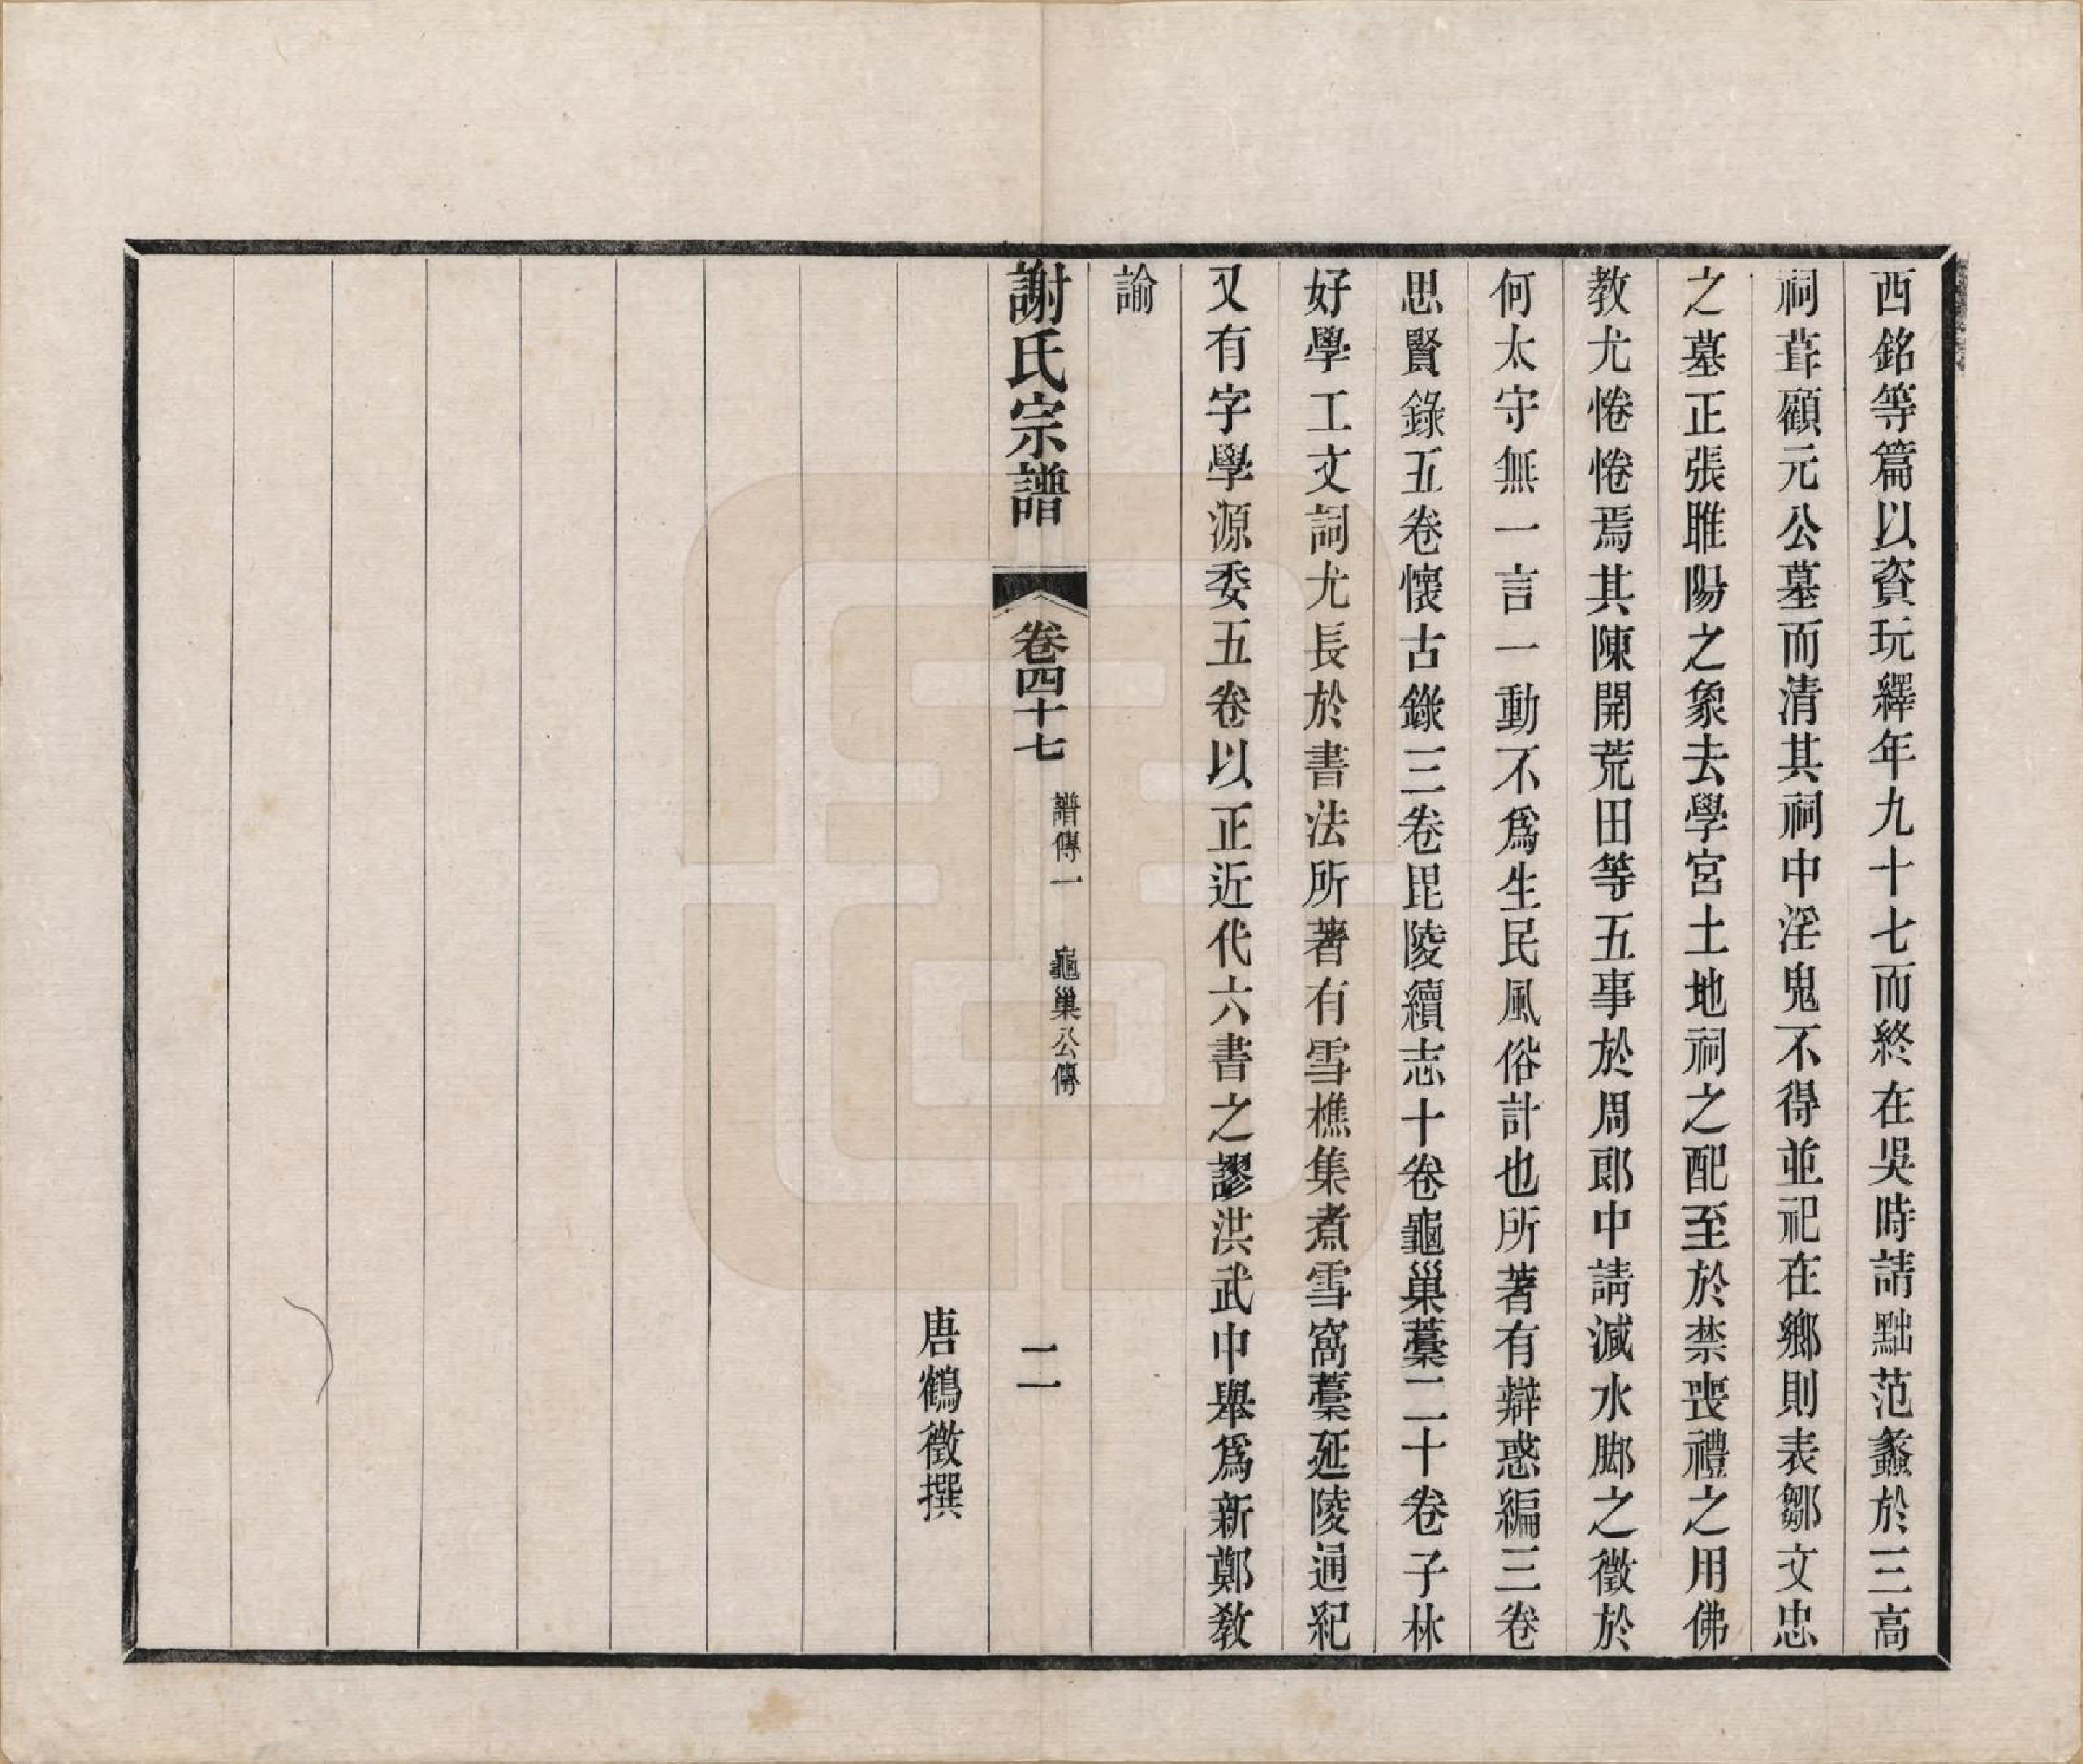 西銘等篇以資玩繹年九十七而終在吳時請黜范蠡於三高
祠葺顧元公墓而清其祠中淫鬼不得並祀在鄉則表鄒文忠
之墓正張睢陽之象去學宮土地祠之配至於禁喪禮之用佛
教尤惓惓焉其陳開荒田等五事於周郎中請減水脚之徵於
何太守無一言一動不爲生民風俗計也所著有辯惑編三卷
思賢錄五卷懷古錄三卷毘陵續志十卷龜巢藁二十卷子林
好學工文詞尤長於書法所著有雪樵集煮雪窩藁延陵通紀
又有字學源委五卷以正近代六書之謬洪武中舉爲新鄭教
諭
謝氏宗譜 卷四十七 譜傳一 龜巢公傳 二
唐鶴徵撰